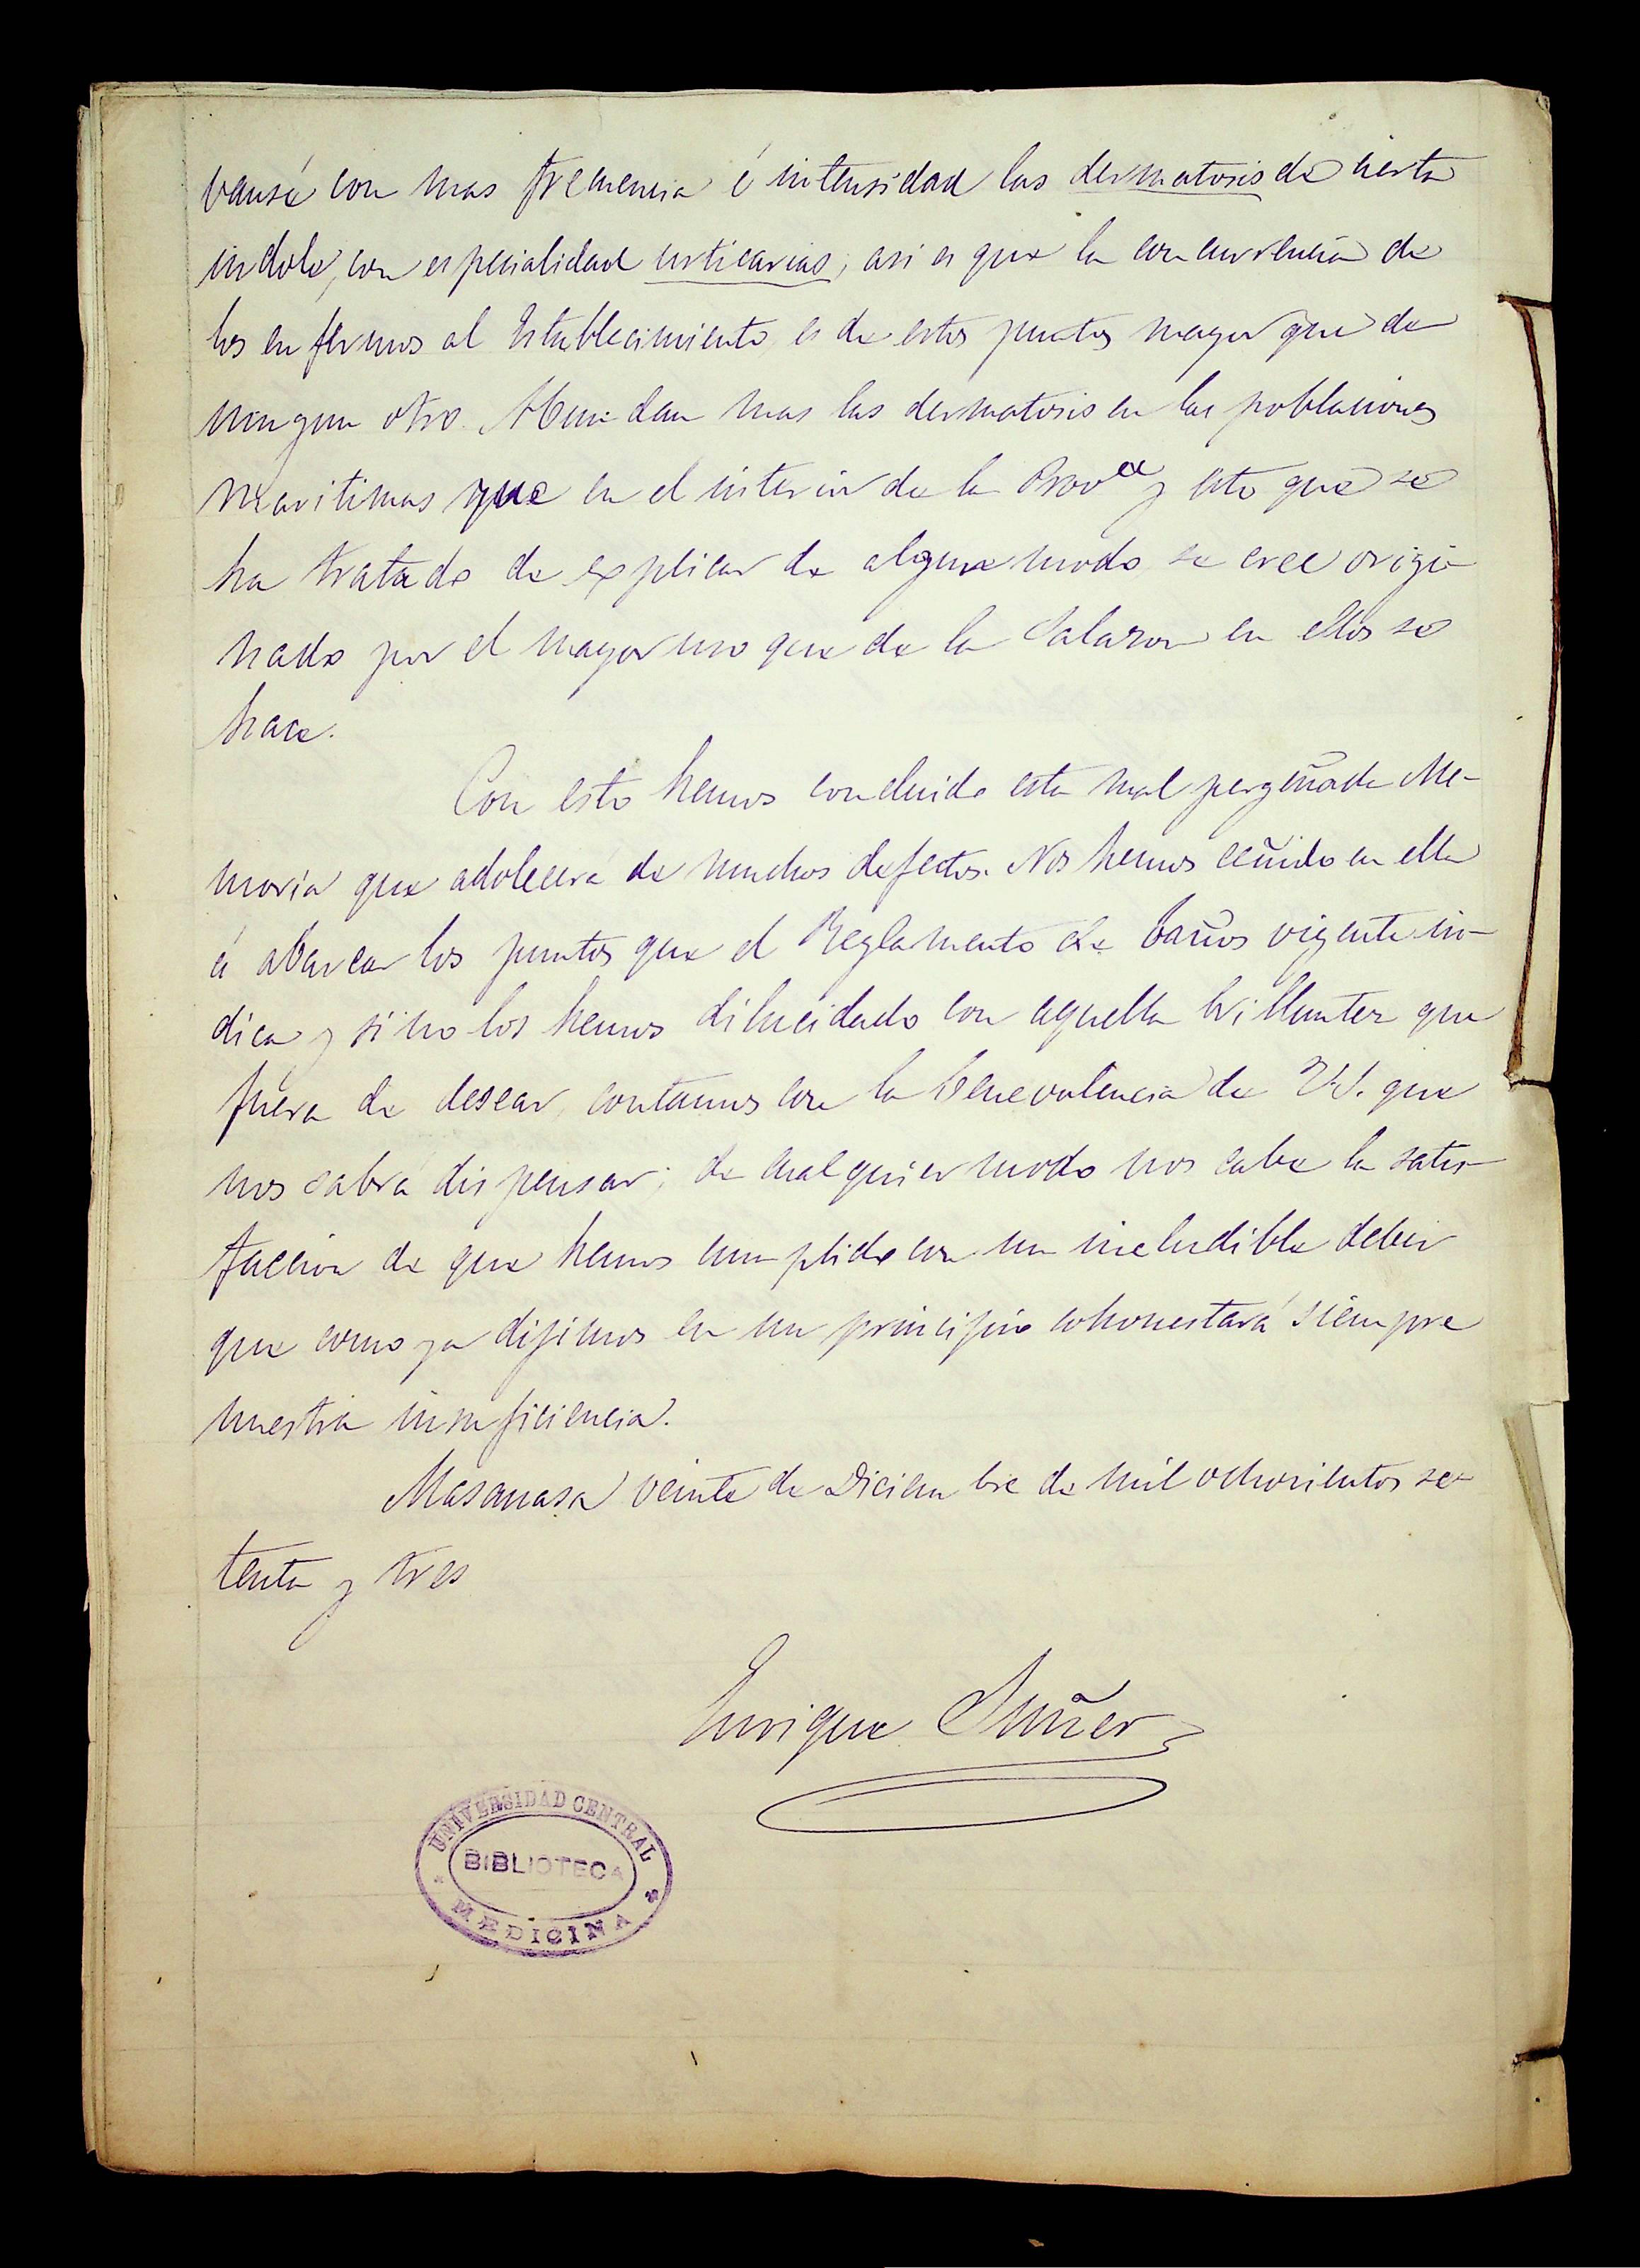 vanse con mas frecuencia é intensidad las dermatosis de cierta
indole, con especialidad urticarias; asi es que la concurrencia de
los enfermos al Establecimiento es de estos puntos mayor que de
ningun otro. Abundan mas las dermatosis en las poblaciones
maritimas que en el interior de la Provcia y esto que se
ha tratado de explicar de algun modo se cree origi-
nado por el mayor uso que de la Salazon en ellos se
hace.
Con esto hemos concluido esta mal pergeñada Me-
moria que adolecerá de muchos defectos. Nos hemos ceñido en ella
á abarcar los puntos que el Reglamento de baños vigente in-
dica y si no los hemos dilucidado con aquella brillantez que
fuera de desear, contamos con la benevolencia de V.S. que
nos sabrá dispensar; de cualquier modo nos cabe la satis-
faccion de que hemos cumplido con un ineludible deber
que como ya digimos en un principio cohonestará siempre
nuestra insuficiencia.
Masanasa veinte de Diciembre de mil ochocientos se-
tenta y tres
Enrique Suñer
UNIVERSIDAD CENTRAL
BIBLIOTECA
MEDICINA